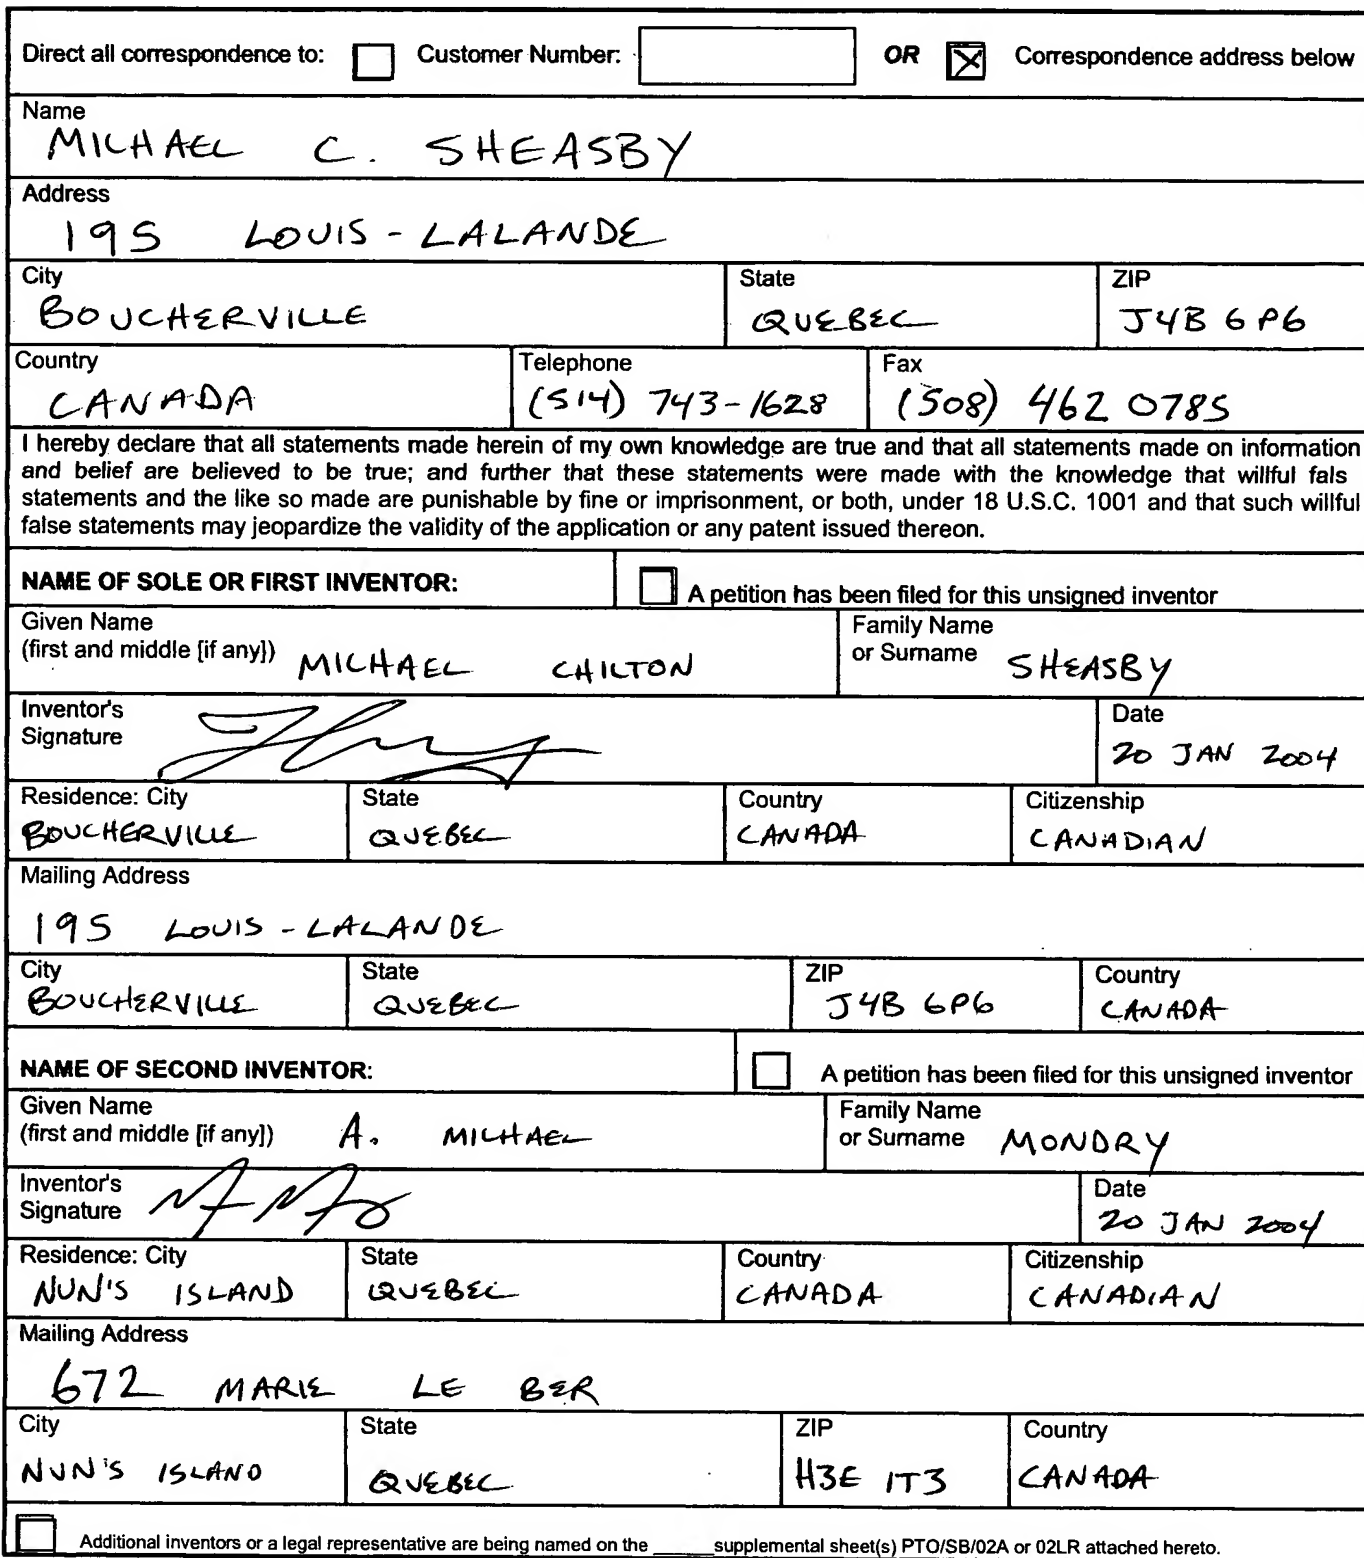 Direct all correspondence to: Customer Number: OR Correspondence address below
Name
MICHAEL C. SHEASBY
Address
195 LOUIS-LALANDE
City State ZIP
BOUCHERVILLE QUEBEC J4B 6P6
Country Telephone Fax
CANADA (514) 743-1628 (508) 462 0785
I hereby declare that all statements made herein of my own knowledge are true and that all statements made on information
and belief are believed to be true; and further that these statements were made with the knowledge that willful fals
statements and the like so made are punishable by fine or imprisonment, or both, under 18 U.S.C. 1001 and that such willful
false statements may jeopardize the validity of the application or any patent issued thereon.
NAME OF SOLE OR FIRST INVENTOR: A petition has been filed for this unsigned inventor
Given Name Family Name
(first and middle [if any]) MICHAEL CHILTON or Surname SHEASBY
Inventor's Date
Signature 20 JAN 2004
Residence: City State Country Citizenship
BOUCHERVILLE QUEBEC CANADA CANADIAN
Mailing Address
195 LOUIS-LALANDE
City State ZIP Country
BOUCHERVILLE QUEBEC J4B 6P6 CANADA
NAME OF SECOND INVENTOR: A petition has been filed for this unsigned inventor
Given Name Family Name
(first and middle [if any]) A. MICHAEL or Surname MONDRY
Inventor's Date
Signature 20 JAN 2004
Residence: City State Country Citizenship
NUN'S ISLAND QUEBEC CANADA CANADIAN
Mailing Address
672 MARIE LE BER
City State ZIP Country
NUN'S ISLAND QUEBEC H3E 1T3 CANADA
Additional inventors or a legal representative are being named on the ______ supplemental sheet(s) PTO/SB/02A or 02LR attached hereto.